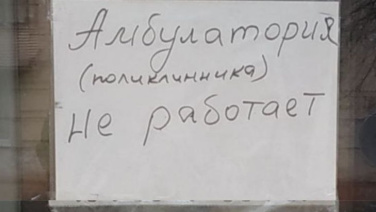 Амбулатория
(поликлинника)
не работает